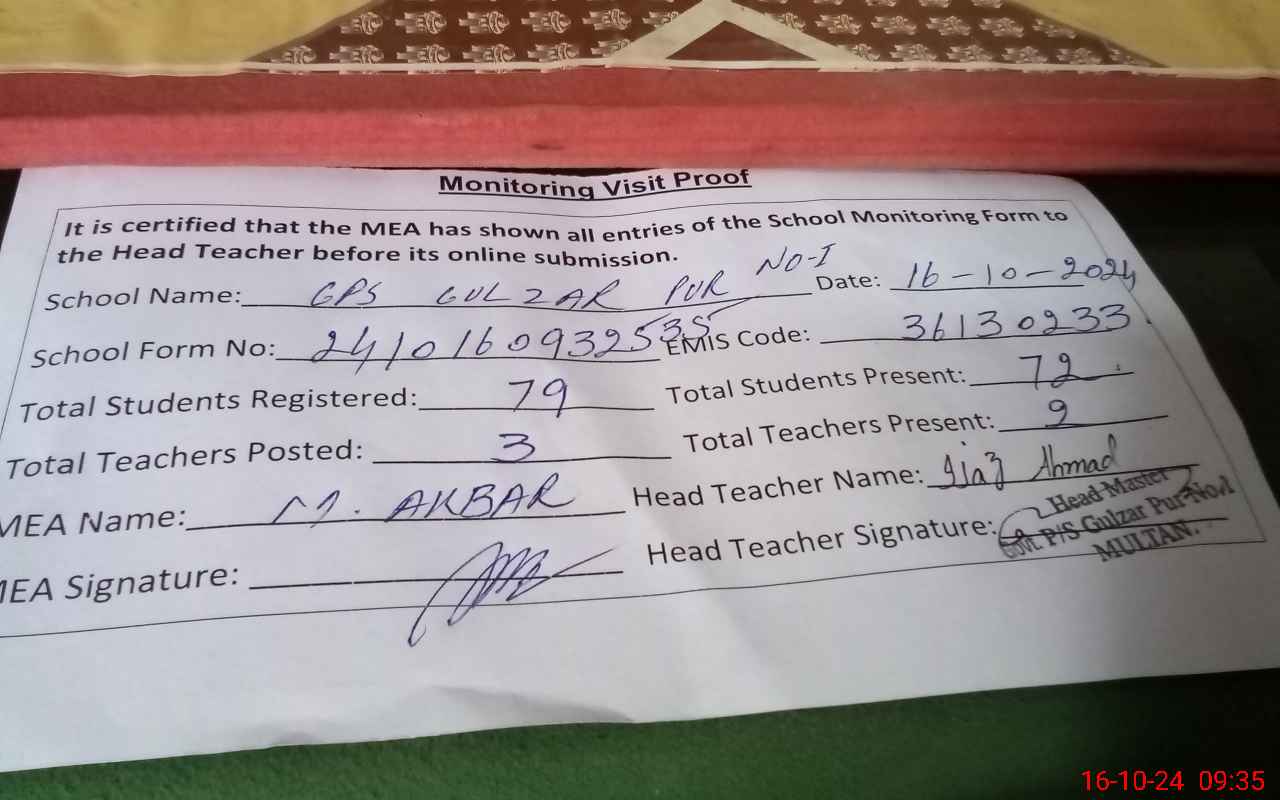 Monitoring Visit Proof
It is certified that the MEA has shown all entries of the School Monitoring Form to
the Head Teacher before its online submission.
School Name: GPS GULZAR PUR NO-I Date: 16-10-2024
School Form No: 2410160932535 EMIS Code: 36130233
Total Students Registered: 79 Total Students Present: 72
Total Teachers Posted: 3 Total Teachers Present: 2
MEA Name: M. AKBAR Head Teacher Name: Ijaz Ahmad
MEA Signature: Head Teacher Signature:
Head Master
Govt. P/S Gulzar Pur No.1
MULTAN.
16-10-24 09:35